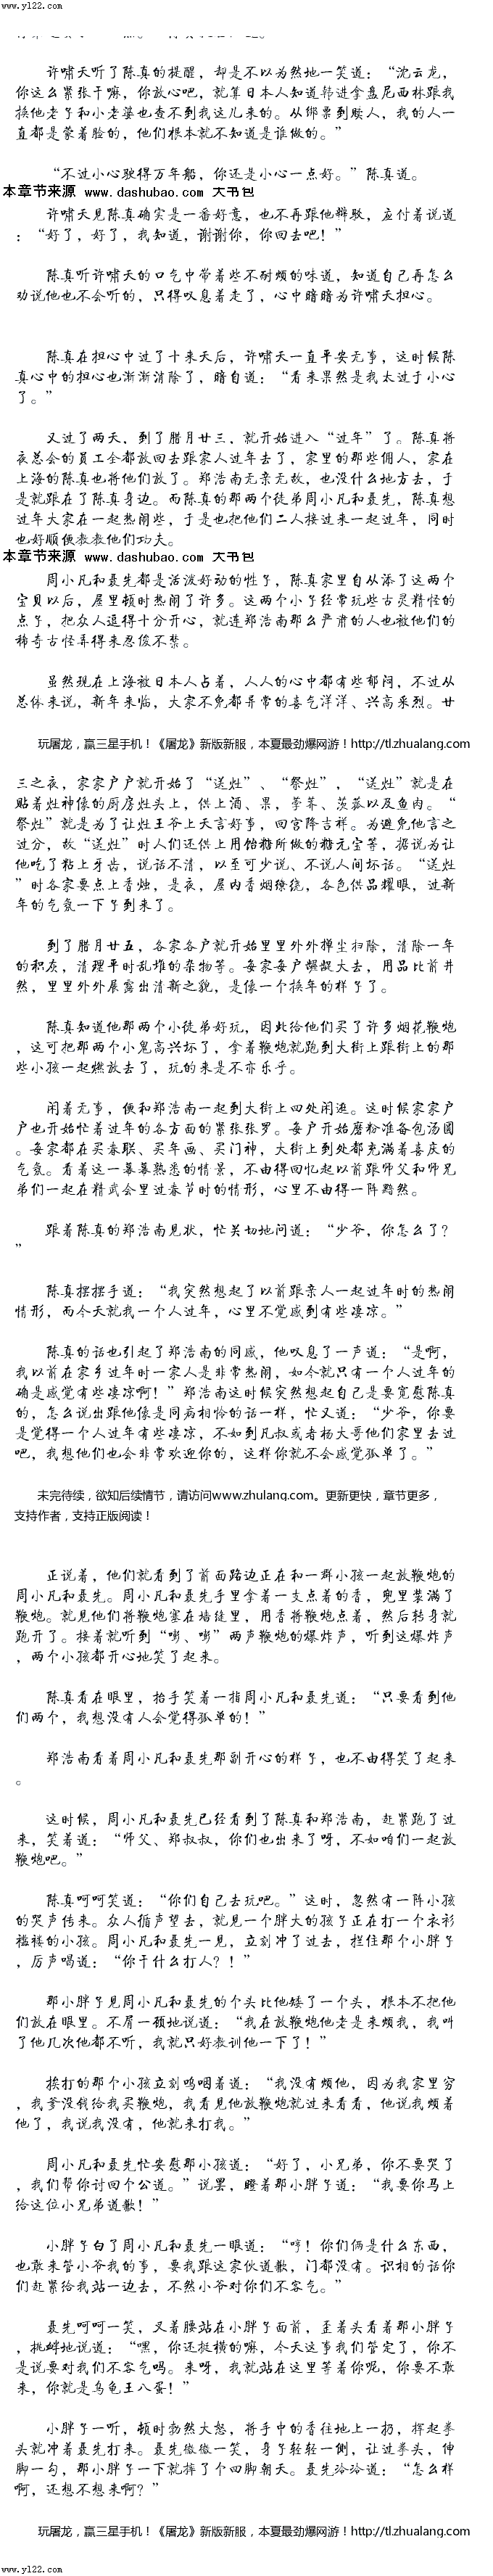 www.yl22.com
许啸天听了陈真的提醒，却是不以为然地一笑道：“沈云龙，
你这么紧张干嘛，你放心吧，就算日本人知道韩进拿盘尼西林跟我
换他老子和小老婆也查不到我这儿来的。从绑票到赎人，我的人一
直都是蒙着脸的，他们根本就不知道是谁做的。”
“不过小心驶得万年船，你还是小心一点好。”陈真道。
本章节来源 www.dashubao.com 大书包
许啸天见陈真确实是一番好意，也不再跟他辩驳，应付着说道
：“好了，好了，我知道，谢谢你，你回去吧！”
陈真听许啸天的口气中带着些不耐烦的味道，知道自己再怎么
劝说他也不会听的，只得叹息着走了，心中暗暗为许啸天担心。
陈真在担心中过了十来天后，许啸天一直平安无事，这时候陈
真心中的担心也渐渐消除了，暗自道：“看来果然是我太过于小心
了。”
又过了两天，到了腊月廿三，就开始进入“过年”了。陈真将
夜总会的員工全都放回去跟家人过年去了，家里的那些佣人，家在
上海的陈真也将他们放了。郑浩南无亲无故，也没什么地方去，于
是就跟在了陈真身边。而陈真的那两个徒弟周小凡和聂先，陈真想
过年大家在一起热闹些，于是也把他们二人接过来一起过年，同时
也好顺便教教他们功夫。
本章节来源 www.dashubao.com 大书包
周小凡和聂先都是活泼好动的性子，陈真家里自从添了这两个
宝贝以后，屋里顿时热闹了许多。这两个小子经常玩些古灵精怪的
点子，把众人逗得十分开心，就连郑浩南那么严肃的人也被他们的
稀奇古怪弄得来忍俊不禁。
虽然现在上海被日本人占着，人人的心中都有些郁闷，不过从
总体来说，新年来临，大家不免都异常的喜气洋洋、兴高采烈。廿
玩屠龙，赢三星手机！《屠龙》新版新服，本夏最劲爆网游！http://tl.zhualang.com
三之夜，家家户户就开始了“送灶”、“祭灶”，“送灶”就是在
贴着灶神像的厨房灶头上，供上酒、果，荸荠、茨菰以及鱼肉。“
祭灶”就是为了让灶王爷上天言好事，回宫降吉祥。为避免他言之
过分，故“送灶”时人们还供上用饴糖所做的糖元宝等，据说为让
他吃了粘上牙齿，说话不清，以至可少说、不说人间坏话。“送灶
”时各家要点上香烛，是夜，屋内香烟缭绕，各色供品耀眼，过新
年的气氛一下子到来了。
到了腊月廿五，各家各户就开始里里外外掸尘扫除，清除一年
的积灰，清理平时乱堆的杂物等。每家每户龌龊大去，用品比前井
然，里里外外展露出清新之貌，是像一个换年的样子了。
陈真知道他那两个小徒弟好玩，因此给他们买了许多烟花鞭炮
，这可把那两个小鬼高兴坏了，拿着鞭炮就跑到大街上跟街上的那
些小孩一起燃放去了，玩的来是不亦乐乎。
闲着无事，便和郑浩南一起到大街上四处闲逛。这时候家家户
户也开始忙着过年的各方面的紧张张罗。每户开始磨粉准备包汤圆
。每家都在买春联、买年画、买门神，大街上到处都充满着喜庆的
气氛。看着这一幕幕熟悉的情景，不由得回忆起以前跟师父和师兄
弟们一起在精武会里过春节时的情形，心里不由得一阵黯然。
跟着陈真的郑浩南见状，忙关切地问道：“少爷，你怎么了？
”
陈真摆摆手道：“我突然想起了以前跟亲人一起过年时的热闹
情形，而今天就我一个人过年，心里不觉感到有些凄凉。”
陈真的话也引起了郑浩南的同感，他叹息了一声道：“是啊，
我以前在家乡过年时一家人是非常热闹，如今就只有一个人过年的
确是感觉有些凄凉啊！”郑浩南这时候突然想起自己是要宽慰陈真
的，怎么说出跟他像是同病相怜的话一样，忙又道：“少爷，你要
是觉得一个人过年有些凄凉，不如到凡叔或者杨大哥他们家里去过
吧，我想他们也会非常欢迎你的，这样你就不会感觉孤单了。”
未完待续，欲知后续情节，请访问www.zhulang.com。更新更快，章节更多，
支持作者，支持正版阅读！
正说着，他们就看到了前面路边正在和一群小孩一起放鞭炮的
周小凡和聂先。周小凡和聂先手里拿着一支点着的香，兜里装满了
鞭炮。就见他们将鞭炮塞在墙缝里，用香将鞭炮点着，然后转身就
跑开了。接着就听到“嘭、嘭”两声鞭炮的爆炸声，听到这爆炸声
，两个小孩都开心地笑了起来。
陈真看在眼里，抬手笑着一指周小凡和聂先道：“只要看到他
们两个，我想没有人会觉得孤单的！”
郑浩南看着周小凡和聂先那副开心的样子，也不由得笑了起来
。
这时候，周小凡和聂先已经看到了陈真和郑浩南，赶紧跑了过
来，笑着道：“师父、郑叔叔，你们也出来了呀，不如咱们一起放
鞭炮吧。”
陈真呵呵笑道：“你们自己去玩吧。”这时，忽然有一阵小孩
的哭声传来。众人循声望去，就见一个胖大的孩子正在打一个衣衫
褴褛的小孩。周小凡和聂先一见，立刻冲了过去，拦住那个小胖子
，厉声喝道：“你干什么打人？！”
那小胖子见周小凡和聂先的个头比他矮了一个头，根本不把他
们放在眼里。不屑一顾地说道：“我在放鞭炮他老是来烦我，我叫
了他几次他都不听，我就只好教训他一下了！”
挨打的那个小孩立刻呜咽着道：“我没有烦他，因为我家里穷
，我爹没钱给我买鞭炮，我看见他放鞭炮就过来看看，他说我烦着
他了，我说我没有，他就来打我。”
周小凡和聂先忙安慰那小孩道：“好了，小兄弟，你不要哭了
，我们帮你讨回个公道。”说罢，瞪着那小胖子道：“我要你马上
给这位小兄弟道歉！”
小胖子白了周小凡和聂先一眼道：“哼！你们俩是什么东西，
也敢来管小爷我的事，要我跟这家伙道歉，门都没有。识相的话你
们赶紧给我站一边去，不然小爷对你们不客气。”
聂先呵呵一笑，叉着腰站在小胖子面前，歪着头看着那小胖子
，挑衅地说道：“嘿，你还挺横的嘛，今天这事我们管定了，你不
是说要对我们不客气吗。来呀，我就站在这里等着你呢，你要不敢
来，你就是乌龟王八蛋！”
小胖子一听，顿时勃然大怒，将手中的香往地上一扔，挥起拳
头就冲着聂先打来。聂先微微一笑，身子轻轻一侧，让过拳头，伸
脚一勾，那小胖子一下就摔了个四脚朝天。聂先冷冷道：“怎么样
啊，还想不想来啊？”
玩屠龙，赢三星手机！《屠龙》新版新服，本夏最劲爆网游！http://tl.zhualang.com
www.yl22.com